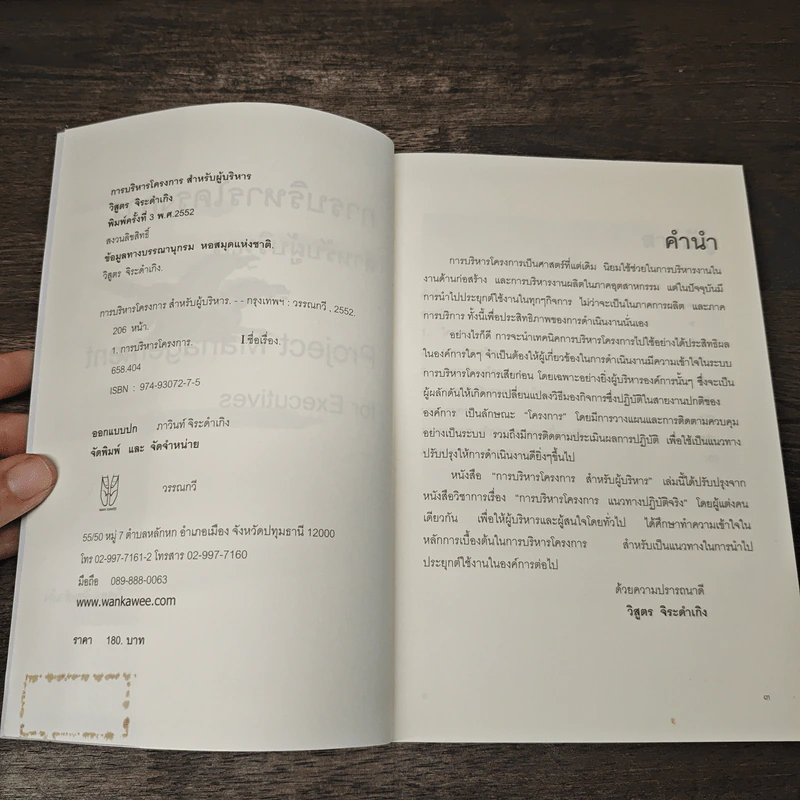 การบริหารโครงการ สำหรับผู้บริหาร
วิสูตร จิระดำเกิง
พิมพ์ครั้งที่ 3 พ.ศ.2552
สงวนลิขสิทธิ์
ข้อมูลทางบรรณานุกรม หอสมุดแห่งชาติ
วิสูตร จิระดำเกิง.
การบริหารโครงการ สำหรับผู้บริหาร. - - กรุงเทพฯ : วรรณกวี , 2552.
206 หน้า.
1. การบริหารโครงการ. I.ชื่อเรื่อง.
658.404
ISBN : 974-93072-7-5
ออกแบบปก ภาวินท์ จิระดำเกิง
จัดพิมพ์ และ จัดจำหน่าย
วรรณกวี
55/50 หมู่ 7 ตำบลหลักหก อำเภอเมือง จังหวัดปทุมธานี 12000
โทร 02-997-7161-2 โทรสาร 02-997-7160
มือถือ 089-888-0063
www.wankawee.com
ราคา 180. บาท
คำนำ
การบริหารโครงการเป็นศาสตร์ที่แต่เดิม นิยมใช้ช่วยในการบริหารงานใน
งานด้านก่อสร้าง และการบริหารงานผลิตในภาคอุตสาหกรรม แต่ในปัจจุบันมี
การนำไปประยุกต์ใช้งานในทุกๆกิจการ ไม่ว่าจะเป็นในภาคการผลิต และภาค
การบริการ ทั้งนี้เพื่อประสิทธิภาพของการดำเนินงานนั่นเอง
อย่างไรก็ดี การจะนำเทคนิคการบริหารโครงการไปใช้อย่างได้ประสิทธิผล
ในองค์การใดๆ จำเป็นต้องให้ผู้เกี่ยวข้องในการดำเนินงานมีความเข้าใจในระบบ
การบริหารโครงการเสียก่อน โดยเฉพาะอย่างยิ่งผู้บริหารองค์การนั้นๆ ซึ่งจะเป็น
ผู้ผลักดันให้เกิดการเปลี่ยนแปลงวิธีมองกิจการซึ่งปฏิบัติในสายงานปกติของ
องค์การ เป็นลักษณะ “โครงการ” โดยมีการวางแผนและการติดตามควบคุม
อย่างเป็นระบบ รวมถึงมีการติดตามประเมินผลการปฏิบัติ เพื่อใช้เป็นแนวทาง
ปรับปรุงให้การดำเนินงานดียิ่งๆขึ้นไป
หนังสือ “การบริหารโครงการ สำหรับผู้บริหาร” เล่มนี้ได้ปรับปรุงจาก
หนังสือวิชาการเรื่อง “การบริหารโครงการ แนวทางปฏิบัติจริง” โดยผู้แต่งคน
เดียวกัน เพื่อให้ผู้บริหารและผู้สนใจโดยทั่วไป ได้ศึกษาทำความเข้าใจใน
หลักการเบื้องต้นในการบริหารโครงการ สำหรับเป็นแนวทางในการนำไป
ประยุกต์ใช้งานในองค์การต่อไป
ด้วยความปรารถนาดี
วิสูตร จิระดำเกิง
๓